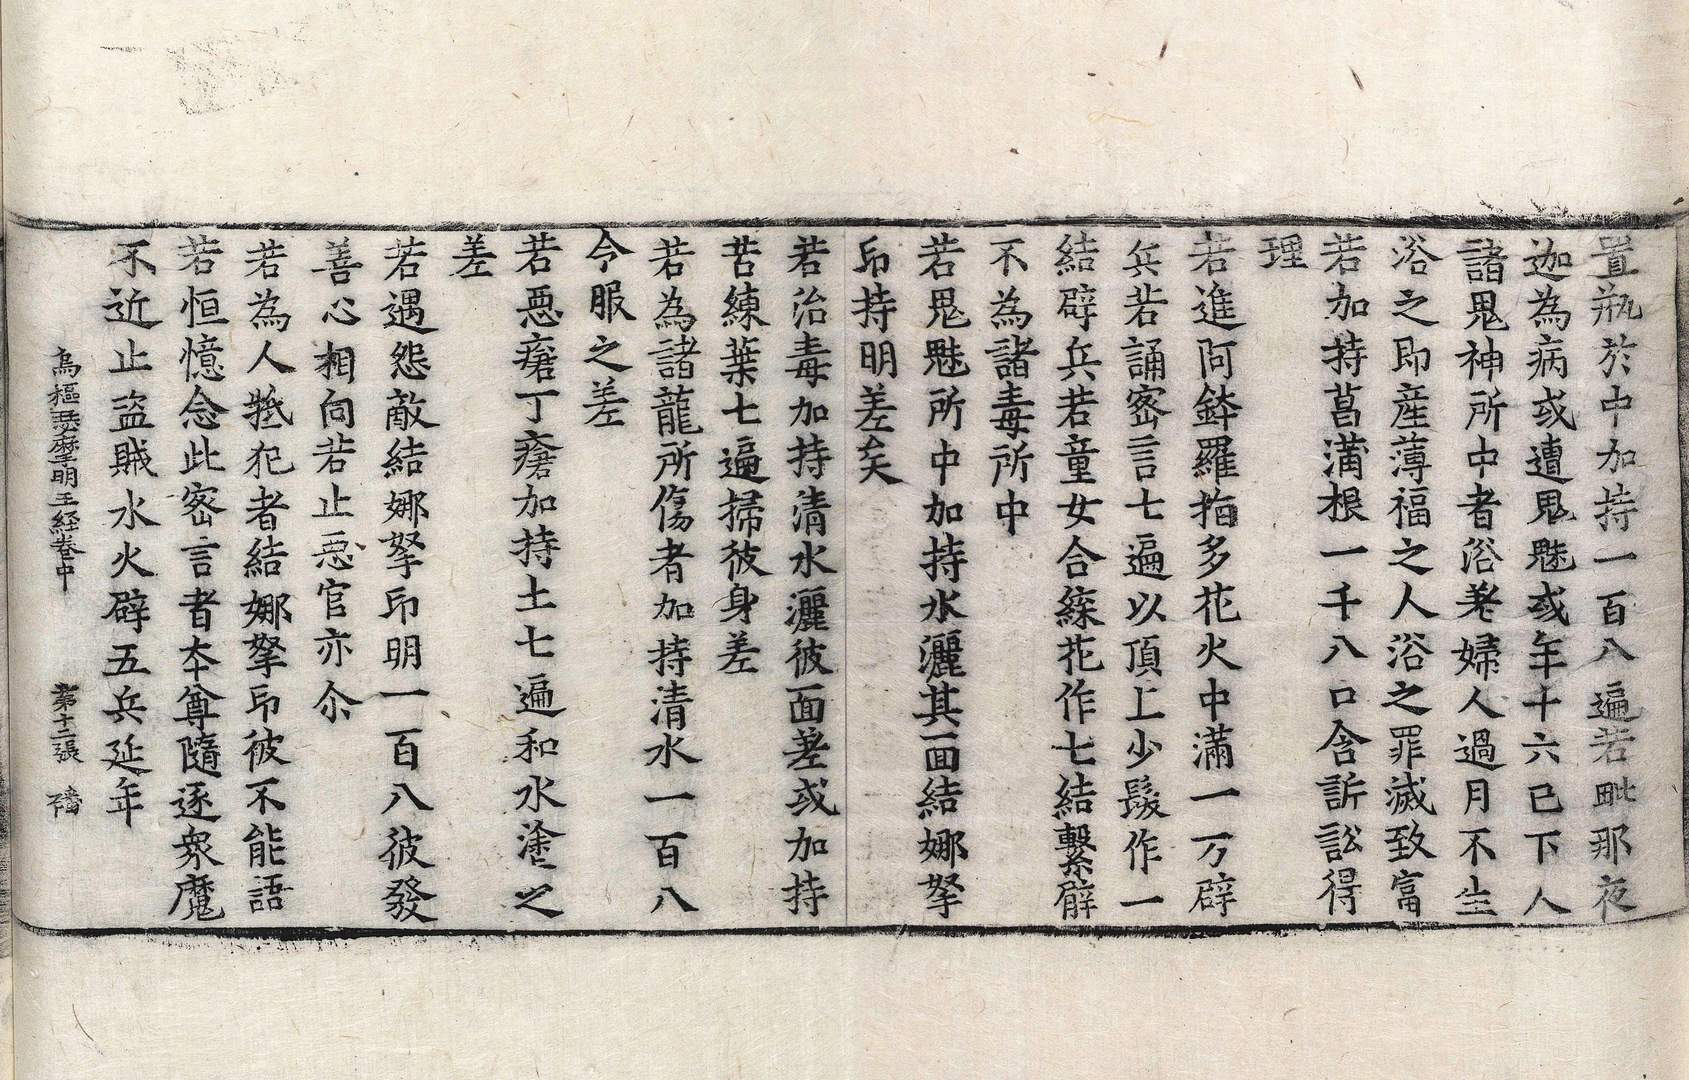 置瓶於中加持一百八遍若毗那夜
迦為病或遭鬼魅或年十六已下人
諸鬼神所中者浴差婦人過月不生
浴之即産薄福之人浴之罪滅致富
若加持菖蒲根一千八口含訴訟得
理
若進阿鉢羅指多花火中滿一万辟
兵若誦密言七遍以頂上少髮作一
結辟兵若童女合綵花作七結繫臂
不為諸毒所中
若鬼魅所中加持水灑其面結娜拏
印持明差矣
若治毒加持清水灑彼面差或加持
苦練葉七遍掃彼身差
若為諸龍所傷者加持清水一百八
令服之差
若惡瘡丁瘡加持土七遍和水塗之
差
若遇怨敵結娜拏印明一百八彼發
善心相向若止惡官亦尒
若為人㧖犯者結娜拏印彼不能語
若恒憶念此密言者夲尊隨逐衆魔
不近止盜賊水火辟五兵延年
烏樞瑟摩明王経卷中 第十二張